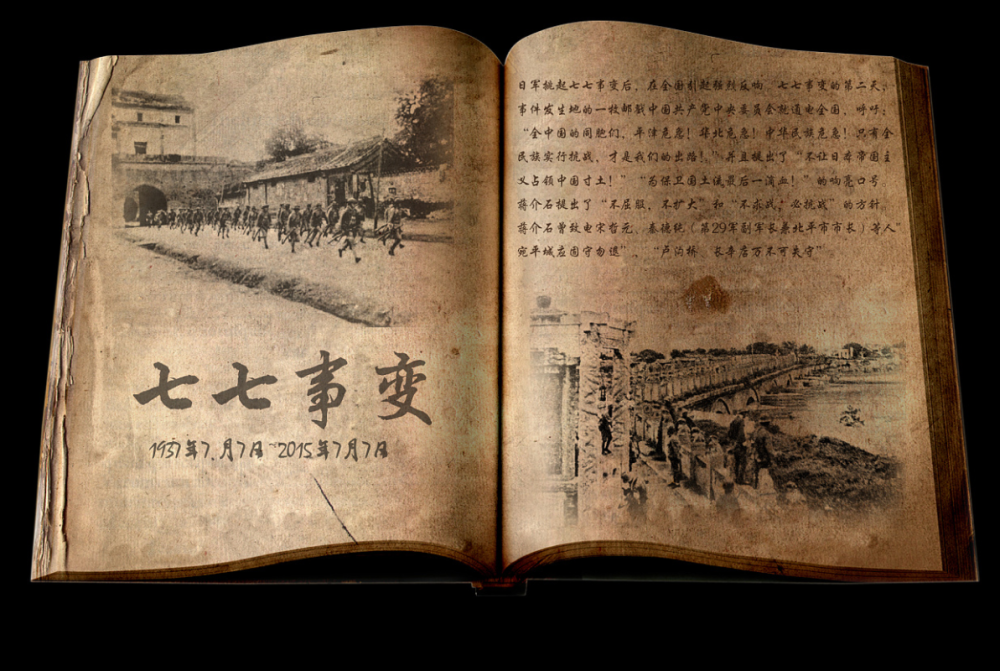 七七事变
1937年7月7日-2015年7月7日
日军挑起七七事变后，在全国引起强烈反响。七七事变的第二天，
事件发生地的一枚邮戳中国共产党中央委员会就通电全国，呼吁：
“全中国的同胞们，平津危急！华北危急！中华民族危急！只有全
民族实行抗战，才是我们的出路！”并且提出了“不让日本帝国主
义占领中国寸土！”“为保卫国土流最后一滴血！”的响亮口号。
蒋介石提出了“不屈服，不扩大”和“不求战，必抗战”的方针。
蒋介石曾致电宋哲元、秦德纯（第29军副军长兼北平市市长）等人“
宛平城应固守勿退”，“卢沟桥 长辛店万不可失守”